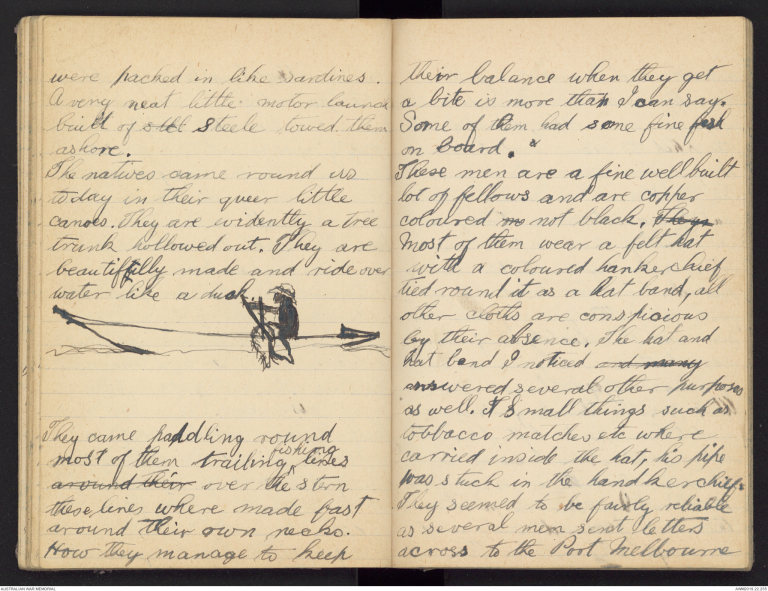 were packed in like sardines.
A very neat little motor launch
built of slet Steele towed them
ashore.
The natives came round us
today in their queer little
canoes. They are evidently a tree
trunk hollowed out. They are
beautifully made and ride over
water like a duck
They came paddling round
fishing
most of them trailing lines
around their over the stern
these lines where made fast
around their own necks.
How they manage to keep
their balance when they get
a bite is more than I can say.
Some of them had some fine fish
on board.
These men are a fine well built
lot of fellows and are copper
coloured not black.
Most of them wear a felt hat
with a coloured hankerchief
tied round it as a hat band, all
other cloths are conspicious
by their absence. The hat and
hat band I noticed and many
answered several other purposes
as well. Small things such as
tobbacco matches etc where
carried inside the hat, his pipe
was stuck in the handkerchief.
They seemed to be fairly reliable
as several men sent letters
across to the Port Melbourne
AUSTRALIAN WAR MEMORIAL